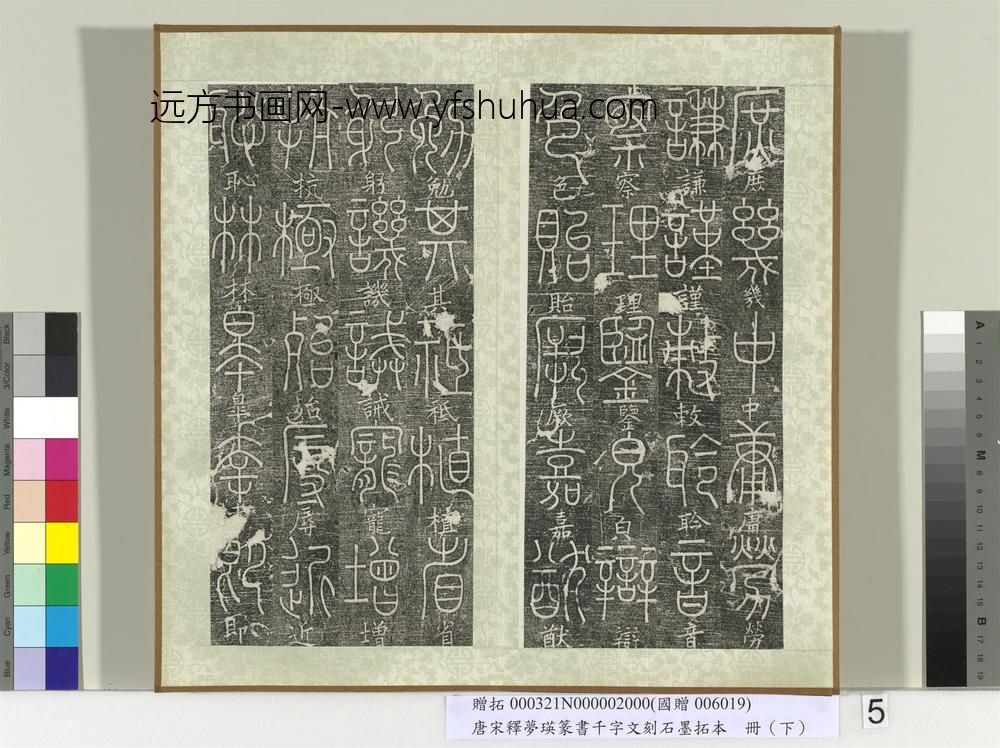 远方书画网-www.yfshuhua.com
庶幾中庸勞
謙謹敕聆音
察理鑒皃辯
色貽厥嘉猷
勉其祗植省
躬譏誡寵增
抗極殆辱近
恥林皋幸即
贈拓 000321N000002000(國贈 006019)
唐宋釋夢瑛篆書千字文刻石墨拓本 冊（下）
5
Black
3/Color
White
Magenta
Red
Yellow
Green
Cyan
Blue
A 1 2 3 4 5 6 M 8 9 10 11 12 13 14 15 B 17 18 19